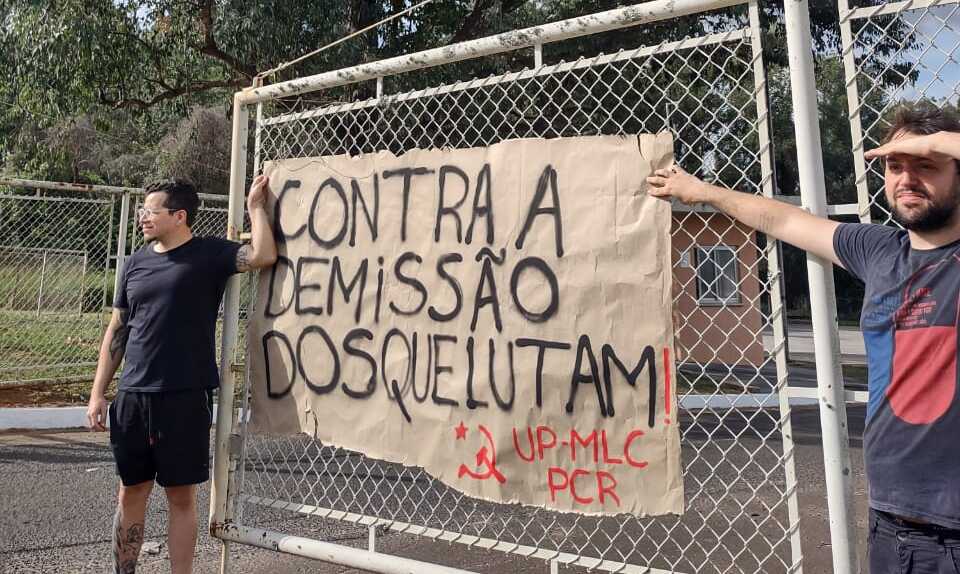 CONTRA A
DEMiSSÃO
DOS QUE LUTAM!
UP-MLC
PCR